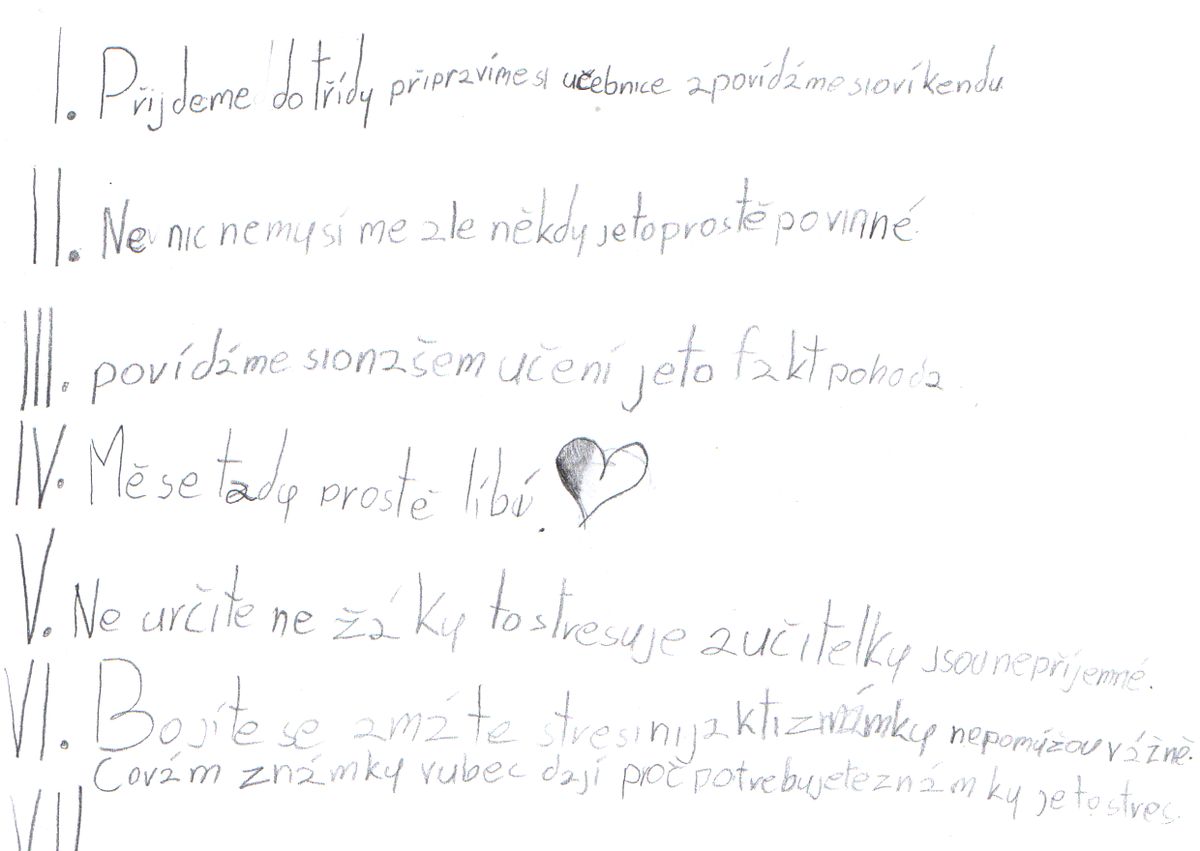 I. Přijdeme do třídy připravíme si učebnice a povídáme si o víkendu.
II. Ne nic nemusíme ale někdy je to prostě povinné.
III. povídáme si o našem učení je to fakt pohoda.
IV. Mě se tady prostě líbí.
V. Ne určite ne žáky to stresuje a učitelky jsou nepříjemné.
VI. Bojíte se a máte stres i nijak ti známky nepomúžou vážně.
Co vám známky vubec dají proč potrebujete známky je to stres.
VII